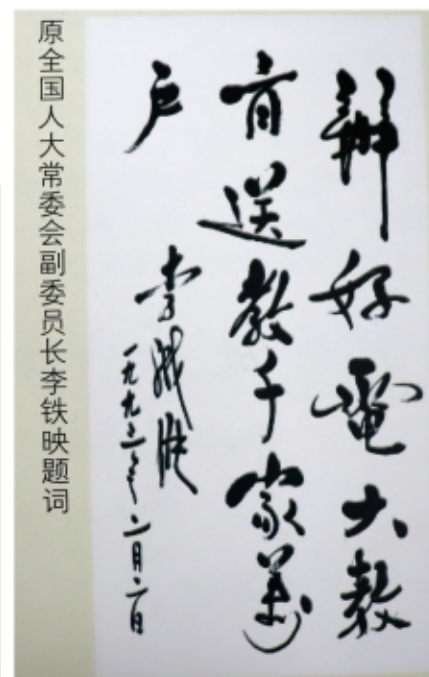 辦好電大教
育送教千家萬
户
李铁映
一九九二年二月二日
原全国人大常委会副委员长李铁映题词